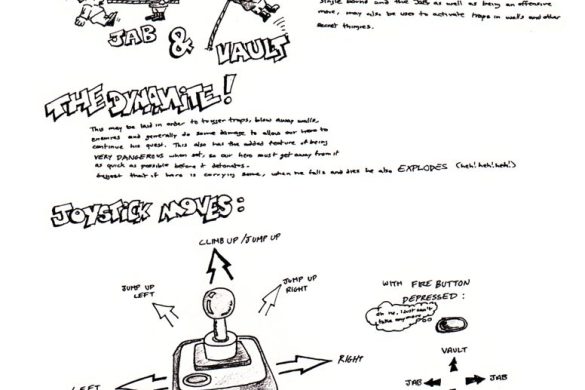 single barrel and the Jab as well as being an offensive
move, may also be used to activate traps in walls and other
secret thingies.
JAB & VAULT
THE DYNAMITE!
This may be laid in order to trigger traps, blow dump walls,
enemies and generally do some damage to allow our hero to
continue his quest. This also has the added feature of being
VERY DANGEROUS when set, so our hero must get away from it
as quick as possible before it detonates.
Suggest that if hero is carrying some, when he falls and dies he also EXPLODES (heh! heh! heh!)
JOYSTICK MOVES:
CLIMB UP / JUMP UP
JUMP UP
LEFT
JUMP UP
RIGHT
WITH FIRE BUTTON
DEPRESSED:
Oh no, I just can't
take anymore
LEFT
RIGHT
VAULT
JAB
JAB